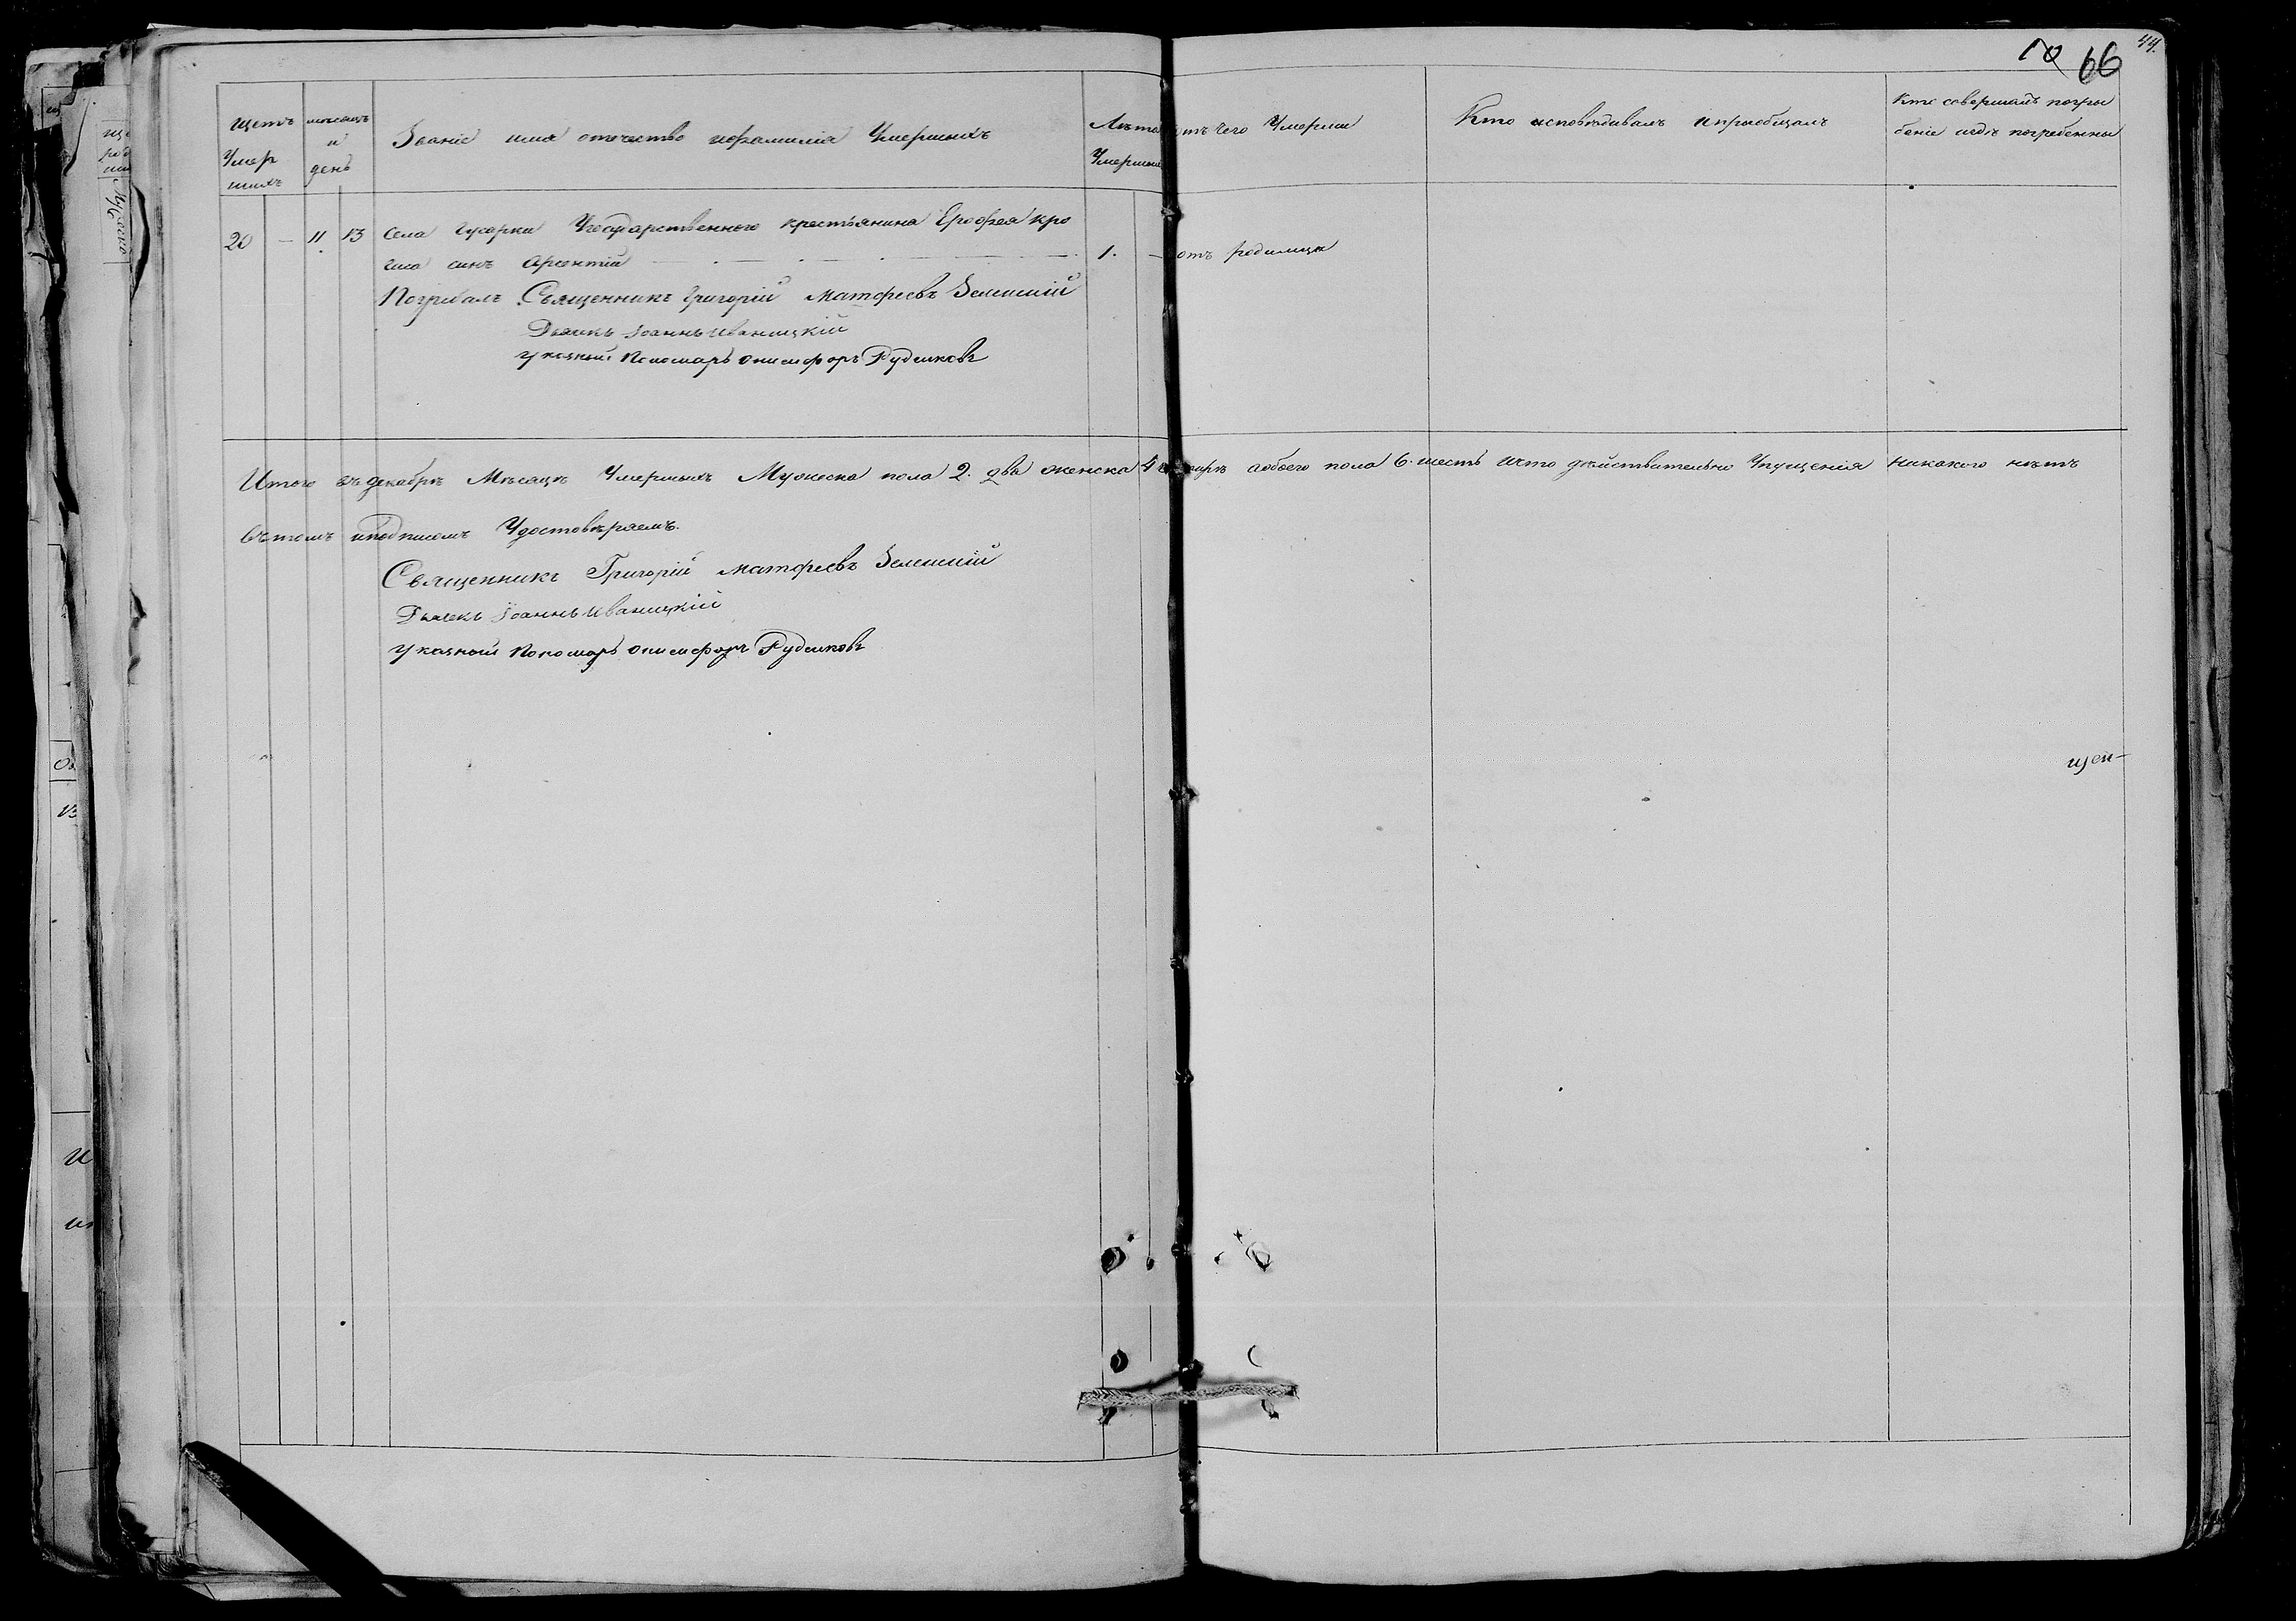 10 66 44.
Щетъ Умер шихъ
мѣсяцъ и день
Званіе имя отечество ифамилія Умершихъ
Лѣта Умершихъ
отъ чего Умерли
Кто исповѣдивалъ ипріобщалъ
Кто совершалъ погре беніе игдѣ погребенны
20 — 11 13 Села Гусарки Государственного крестьянина Ерофея кро
сынъ Арсентій 1. — отъ родимца
Погребалъ Священникъ Григорій Матфеевъ
Дьячекъ Іоаннъ Иваницкій
указный Пономарь Онисифоръ Рудиковъ
Итого въ декабрѣ Мѣсяцѣ Умершихъ Мужеска пола 2. два женска 4 аобоего пола 6. шесть ичто дѣйствительно Упущенія никакого нѣтъ
Вътомъ иподписомъ Удостовѣряемъ.
Священникъ Григорій Матфеевъ
Дьячекъ Іоаннъ Иваницкій
указный Пономарь Онисифоръ Рудиковъ
щен-